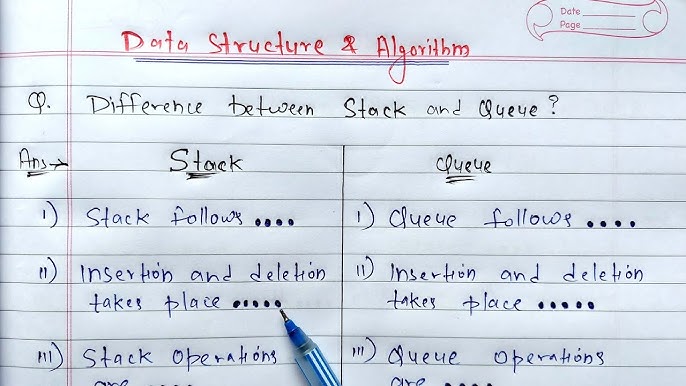 Date
Page
Data Structure & Algorithm
Q. Difference between Stack and Queue?
Ans→ Stack
Queue
i) Stack follows ••••
i) Queue follows ••••
ii) Insertion and deletion
takes place •••••
ii) Insertion and deletion
takes place •••••
iii) Stack Operations
are ••••
iii) Queue Operations
are ••••